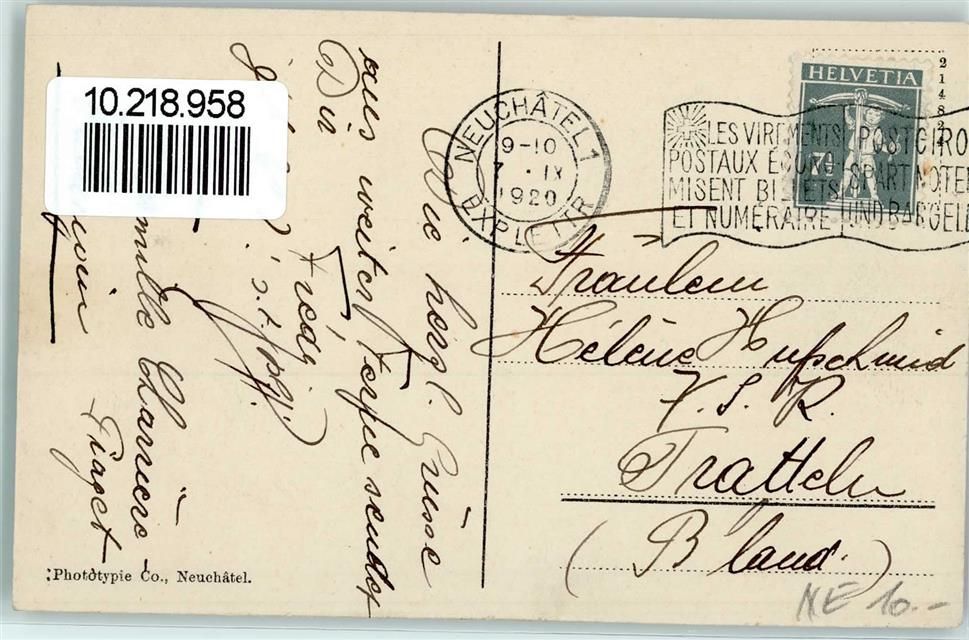 10.218.958
NEUCHÂTEL 1
9-10
7. IX
1920
EXP. LETTR
LES VIREMENTS
POSTAUX ÉCONO
MISENT BILLETS
ET NUMÉRAIRE
POSTCIRO
SPART NOTEN
UND BARGELD
HELVETIA
7½
21482
Fräulein
Hélène Hufschmid
V. S. K.
Pratteln
(B'land.)
Die herzl. Grüsse
aus weiter Ferne sendet
Dir
Frédy
Famille Charrière-
Piaget
:Phototypie Co., Neuchâtel.
NE 10.-